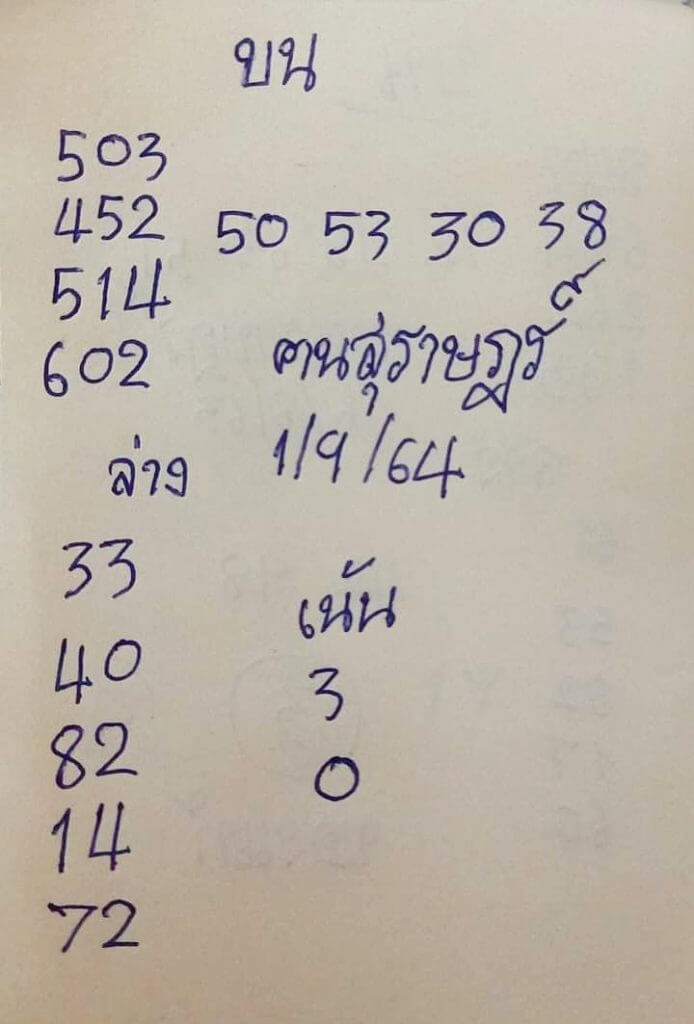 บน
503
452 50 53 30 38
514
602 คนสุราษฎร์
ล่าง 1/9/64
33
เน้น
40 3
82 0
14
72